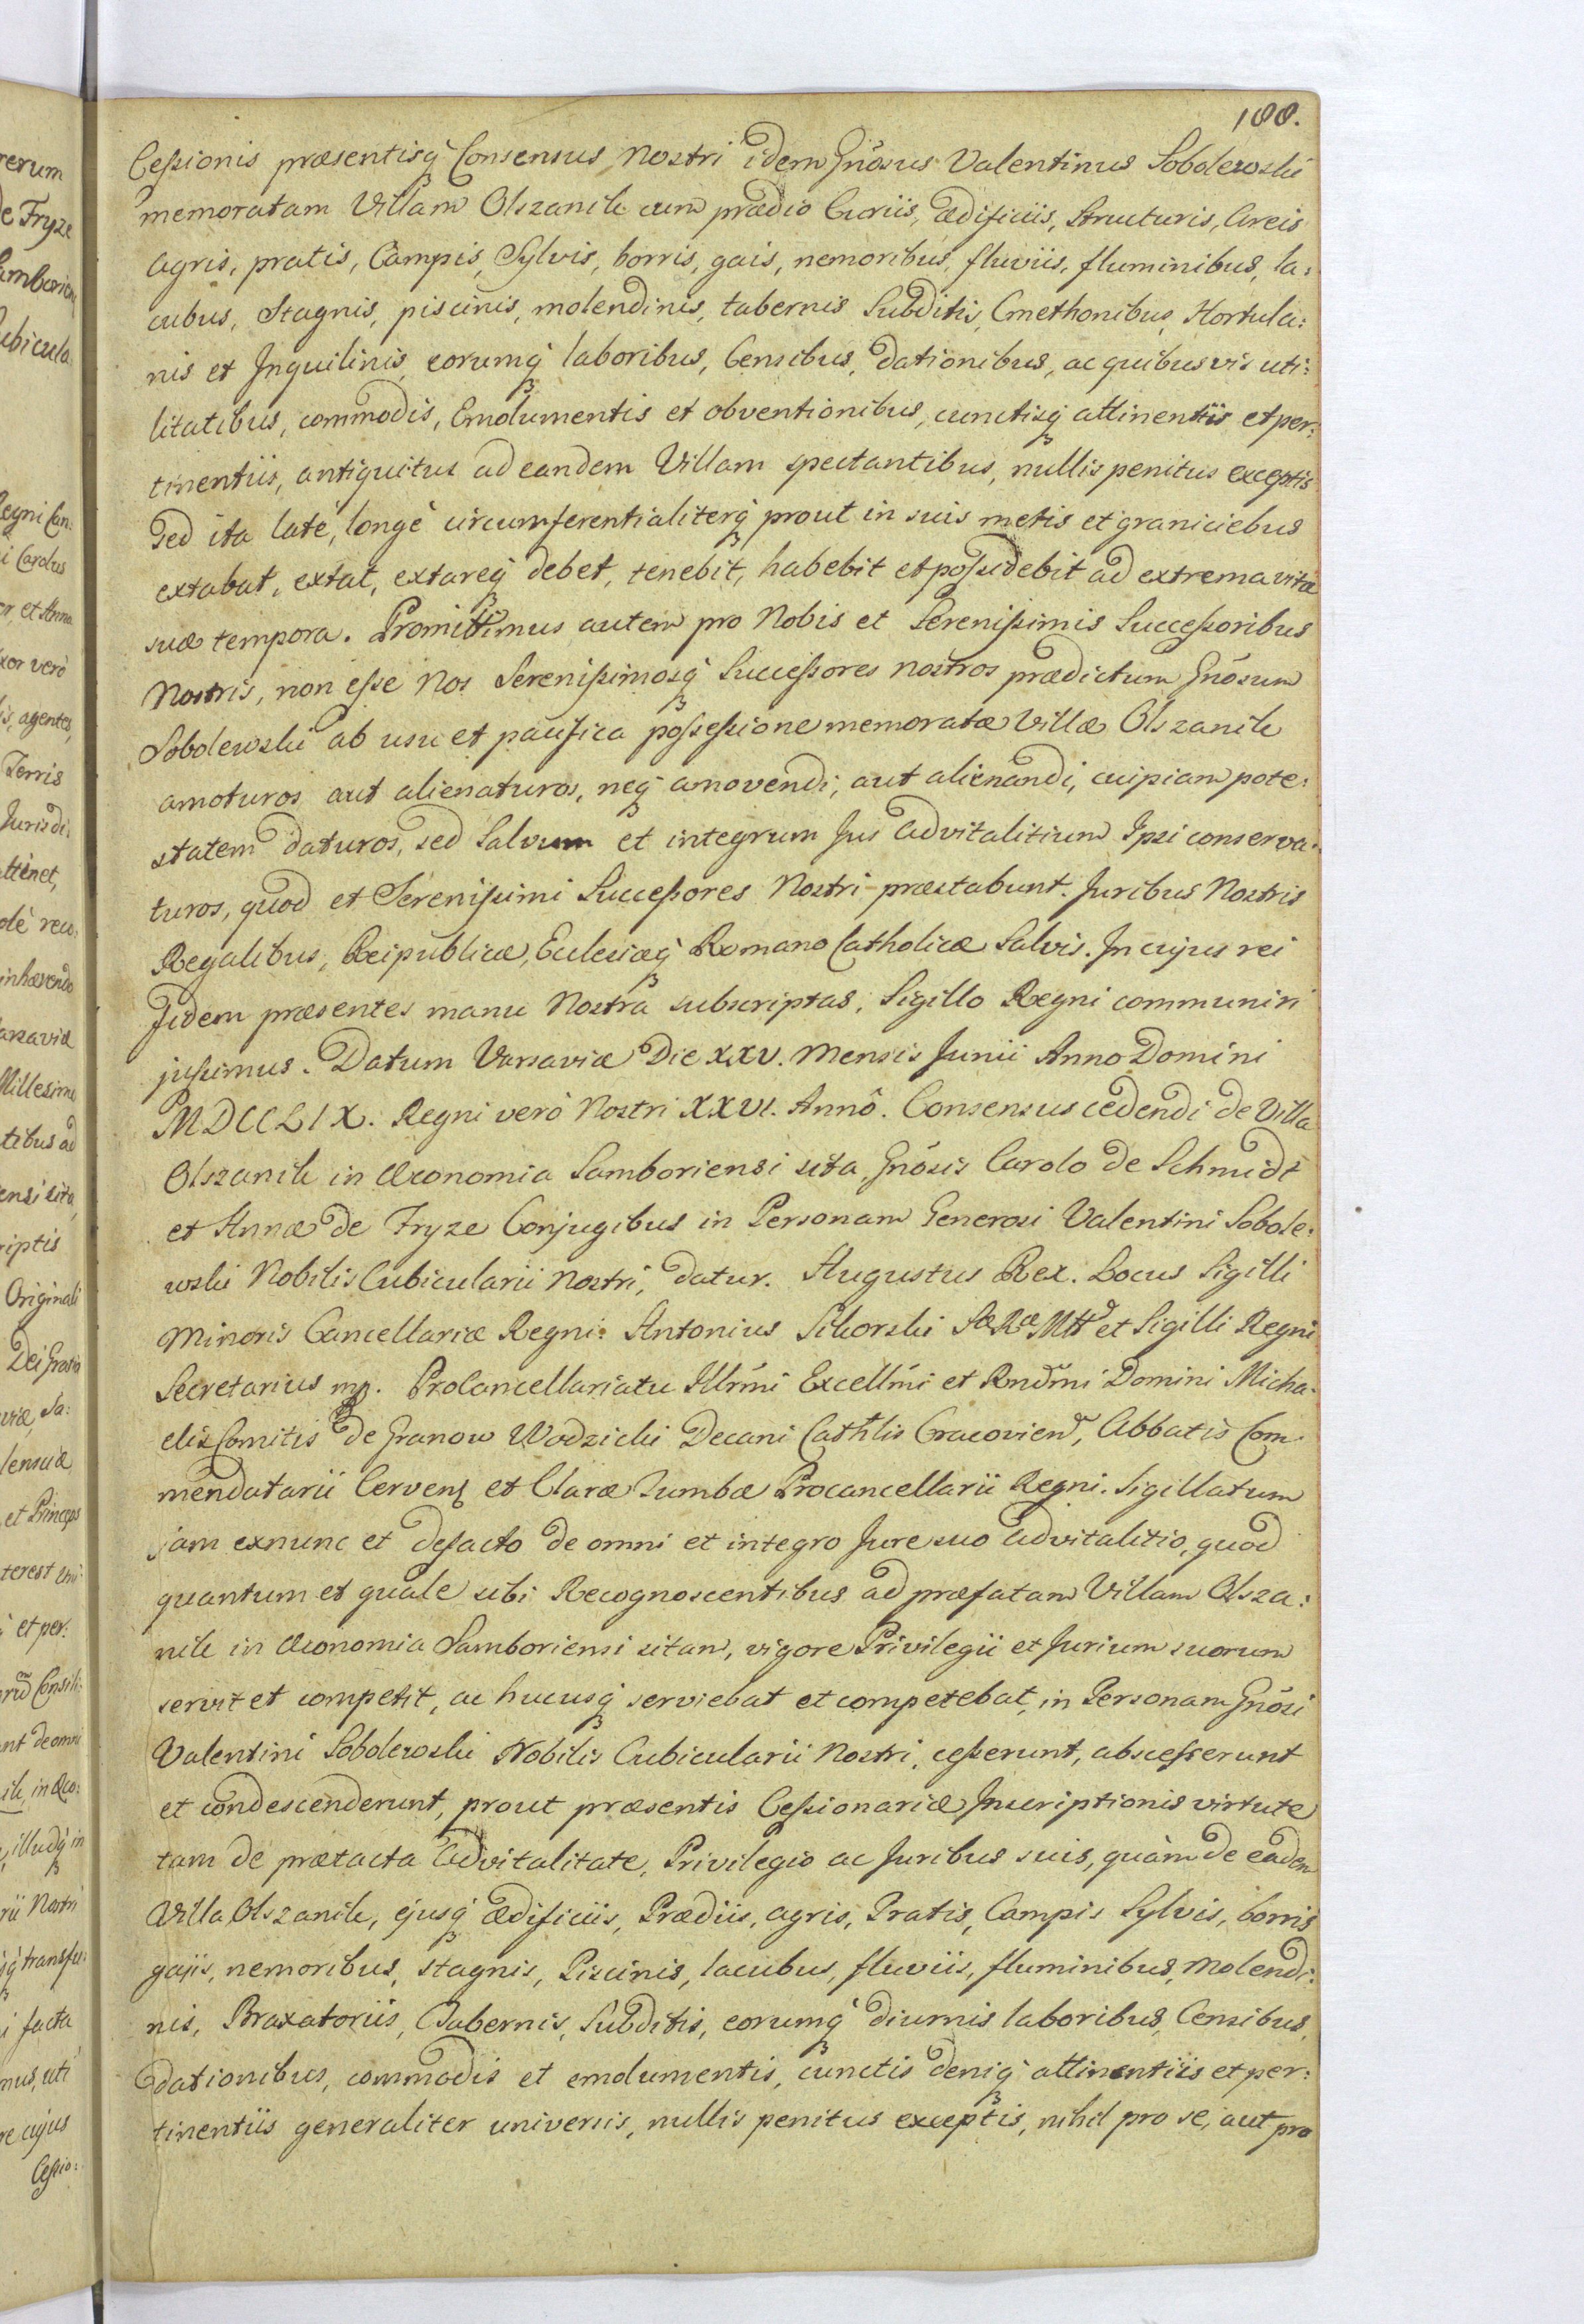 100.
Cessionis præsentisq́ Consensus Nostri idem Gnõsus Valentinus Sobolewski
memoratam Villam Olszanik cum prædio Curiis, ædificiis, Structuris, Areis
Agris, pratis, Campis, Sylvis, borris, gais, nemoribus, fluviis, fluminibus, la:
cubus, Stagnis, piscinis, molendinis, tabernis Subditis, Cmethonibus, Hortula:
nis et Inquilinis, eorumq́ laboribus, Censibus, dationibus, ac quibusvis uti:
litatibus, commodis, Emolumentis et obventionibus, cunctisq́ attinentiis et per:
tinentiis, antiquitus ad eandem Villam spectantibus, nullis penitus exceptis
sed ita latè, longè circumferentialiterq́ prout in suis metis et graniciebus
extabat, extat, extareq́ debet, tenebit, habebit et possidebit ad extrema vitæ
suæ tempora. Promittimus autem pro Nobis et Serenissimis Successoribus
Nostris, non esse Nos Serenissimosq́ Successores nostros prædictum Gnõsum
Sobolewski ab usu et pacifica possessione memoratæ Villæ Olszanik
amoturos aut alienaturos, neq́ amovendi, aut alienandi, cuipiam pote:
statem daturos, sed Salvum et integrum Jus Advitalitium Ipsi conserva:
turos, quod et Serenissimi Successores Nostri præstabunt. Juribus Nostris
Regalibus, Reipublicæ, Ecclesiæq́ Romano Catholicæ Salvis. In cujus rei
fidem præsentes manu Nostra subscriptas, Sigillo Regni communiri
jussimus. Datum Varsaviæ Die XXV. Mensis Junii Anno Domini
MDCCLIX. Regni verò Nostri XXVI. Annô. Consensus cedendi de Villa
Olszanik in Œconomia Samboriensi sita, Gnõsis Carolo de Schmidt
et Annæ de Fryze Conjugibus in Personam Generosi Valentini Sobole:
wski Nobilis Cubicularii Nostri, datur. Augustus Rex. Locus Sigilli
Minoris Cancellariæ Regni. Antonius Sikorski Sæ Ræ Mtt̃ et Sigilli Regni
Secretarius mp. Procancellariatu Illrm̃i Excellm̃i et Rndm̃i Domini Micha:
elis Comitis de Granow Wodzicki Decani Cathlis Cracovien̄, Abbatis Com:
mendatarii Cerven̄ et Claræ Tumbæ Procancellarii Regni. Sigillatum
jam exnunc et defacto de omni et integro Jure suo advitalitio, quod
quantum et quale sibi Recognoscentibus ad præfatam Villam Olsza:
nik in Œconomia Samboriensi sitam, vigore Privilegii et Jurium suorum
servit et competit, ac hucusq́ serviebat et competebat, in Personam Gnõsi
Valentini Sobolewski Nobilis Cubicularii Nostri, cesserunt, abscesserunt
et condescenderunt, prout præsentis Cessionariæ Inscriptionis virtute
tam de prætacta Advitalitate, Privilegio ac Juribus suis, quàm de eadem
Villa Olszanik, ejusq́ ædificiis, Prædiis, agris, Pratis, Campis Sylvis, borris
gajis, nemoribus, stagnis, Piscinis, lacubus, fluviis, fluminibus, Molendi:
nis, Braxatoriis, Tabernis, Subditis, eorumq́ diurnis laboribus, Censibus,
dationibus, commodis et emolumentis, cunctis deniq́ attinentiis et per:
tinentiis generaliter universis, nullis penitus exceptis, nihil pro se, aut pro